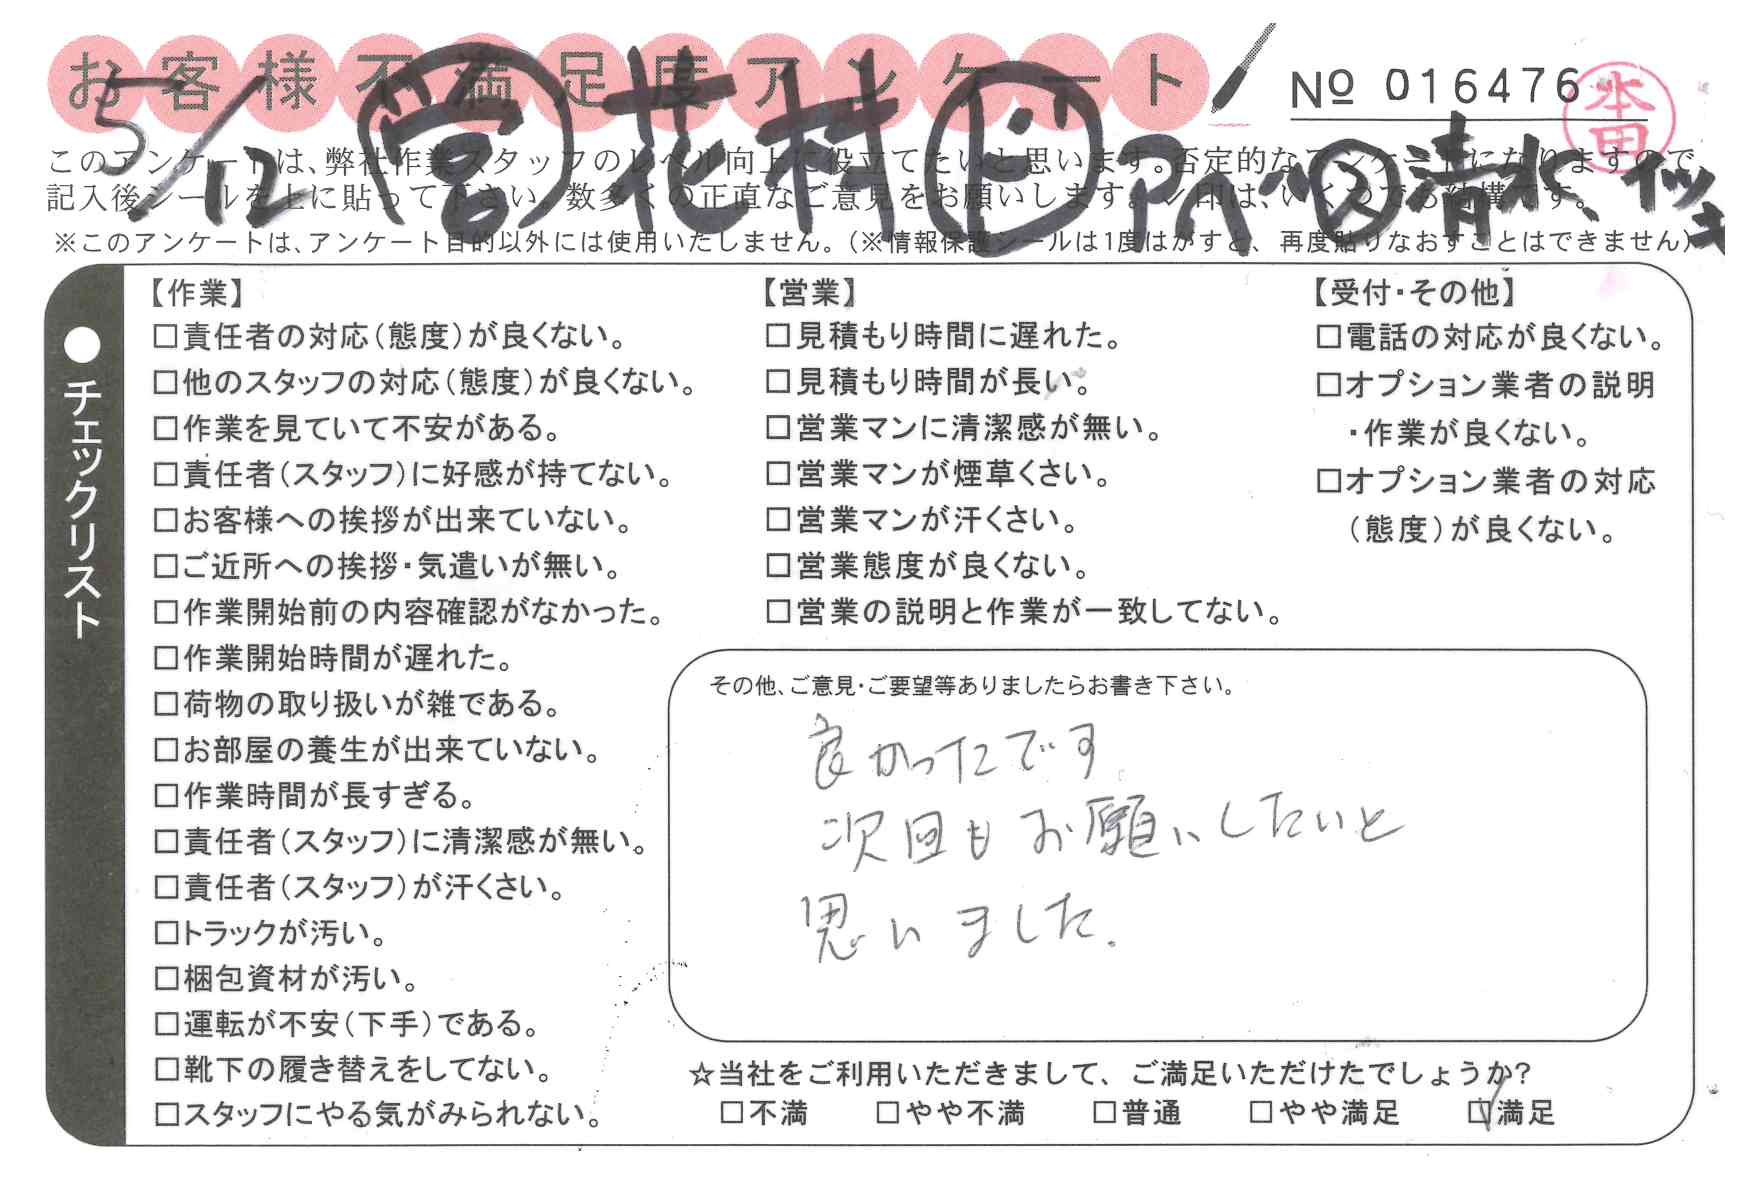 お客様不満足度アンケート
№ 016476
本田
5/12 営 花村 ド アハヘ ス 清水、イッキ
このアンケートは、弊社作業スタッフのレベル向上に役立てたいと思います。否定的なアンケートになりますので、
記入後シールを上に貼って下さい。数多くの正直なご意見をお願いします。✓印は、いくつでも結構です。
※このアンケートは、アンケート目的以外には使用いたしません。（※情報保護シールは1度はがすと、再度貼りなおすことはできません）
●チェックリスト
【作業】
□責任者の対応（態度）が良くない。
□他のスタッフの対応（態度）が良くない。
□作業を見ていて不安がある。
□責任者（スタッフ）に好感が持てない。
□お客様への挨拶が出来ていない。
□ご近所への挨拶・気遣いが無い。
□作業開始前の内容確認がなかった。
□作業開始時間が遅れた。
□荷物の取り扱いが雑である。
□お部屋の養生が出来ていない。
□作業時間が長すぎる。
□責任者（スタッフ）に清潔感が無い。
□責任者（スタッフ）が汗くさい。
□トラックが汚い。
□梱包資材が汚い。
□運転が不安（下手）である。
□靴下の履き替えをしてない。
□スタッフにやる気がみられない。
【営業】
□見積もり時間に遅れた。
□見積もり時間が長い。
□営業マンに清潔感が無い。
□営業マンが煙草くさい。
□営業マンが汗くさい。
□営業態度が良くない。
□営業の説明と作業が一致してない。
【受付・その他】
□電話の対応が良くない。
□オプション業者の説明
・作業が良くない。
□オプション業者の対応
（態度）が良くない。
その他、ご意見・ご要望等ありましたらお書き下さい。
良かったです
次回もお願いしたいと
思いました.
☆当社をご利用いただきまして、ご満足いただけたでしょうか？
□不満 □やや不満 □普通 □やや満足 ☑満足